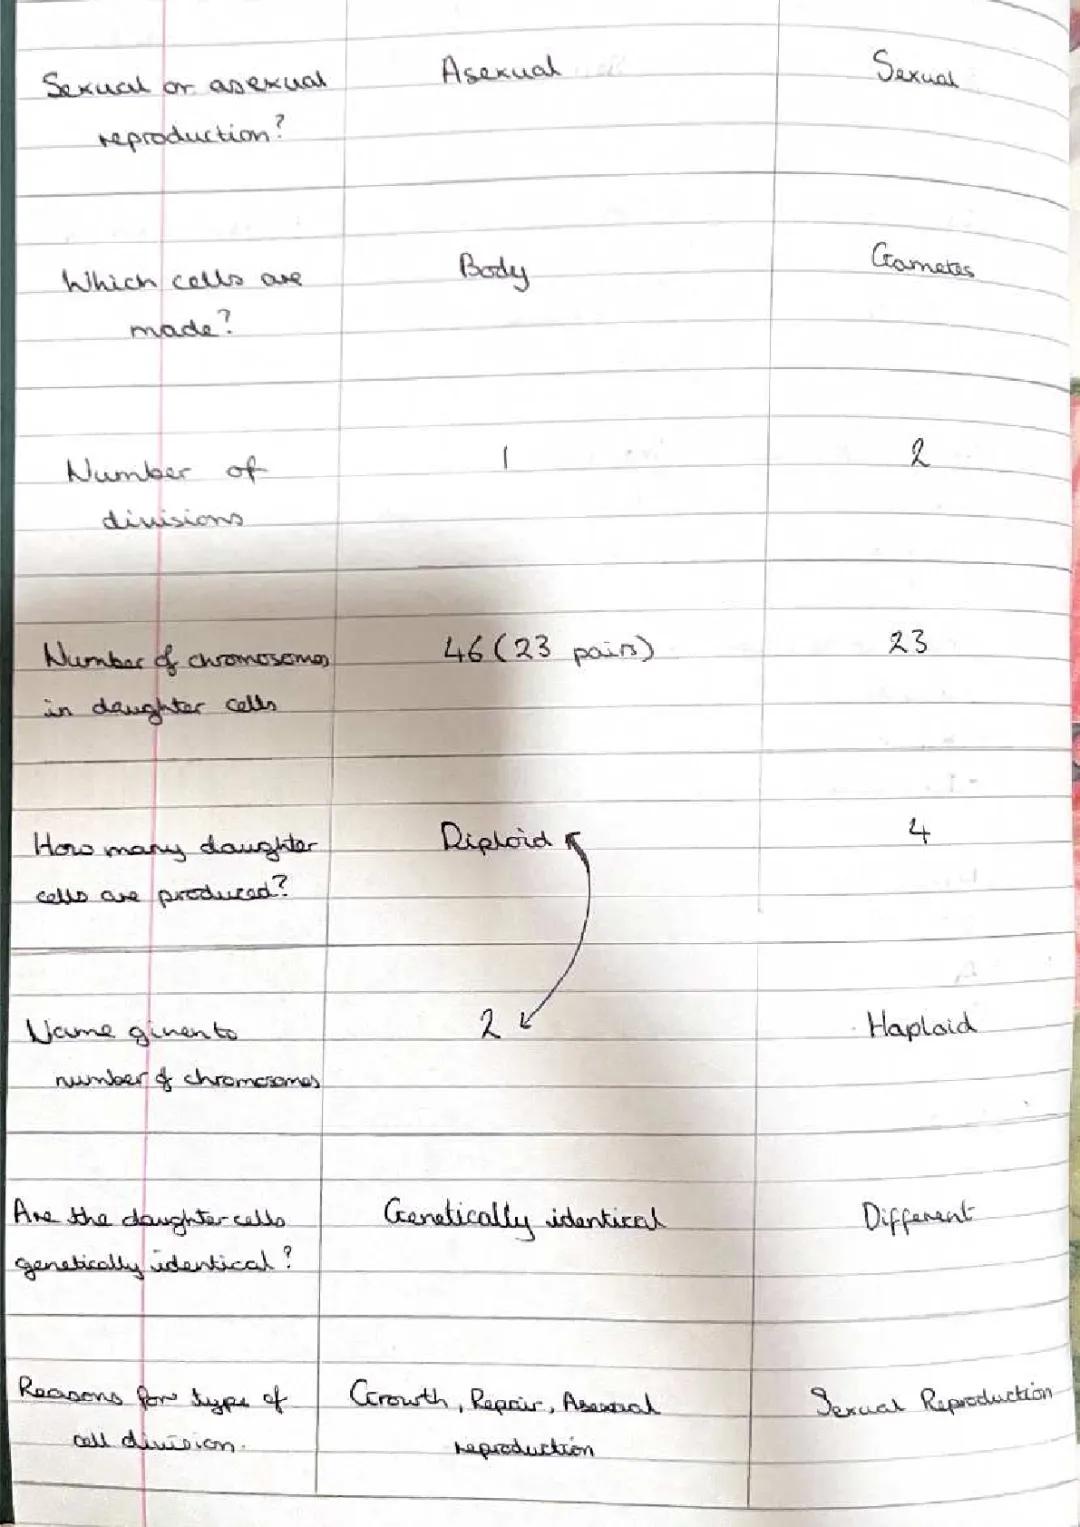 Sexual or asexual Asexual Sexual
reproduction?
Which cells are Body Gametes
made?
Number of 1 2
divisions
Number of chromosomes 46 (23 pairs) 23
in daughter cells
How many daughter Diploid 4
cells are produced?
Name given to 2 Haploid
number of chromosomes
Are the daughter cells Genetically identical Different
genetically identical?
Reasons for type of Growth, Repair, Asexual Sexual Reproduction
cell division. reproduction